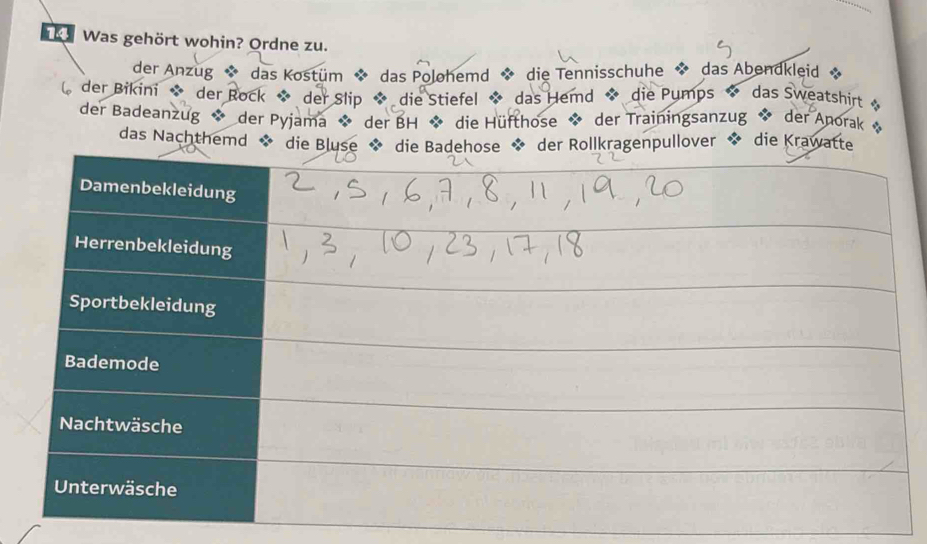 14 Was gehört wohin? Ordne zu.
der Anzug ❖ das Kostüm ❖ das Polohemd ❖ die Tennisschuhe ❖ das Abendkleid ❖
6 der Bikini ❖ der Rock ❖ der Slip ❖ die Stiefel ❖ das Hemd ❖ die Pumps ❖ das Sweatshirt ❖
der Badeanzug ❖ der Pyjama ❖ der BH ❖ die Hüfthose ❖ der Trainingsanzug ❖ der Anorak ❖
das Nachthemd ❖ die Bluse ❖ die Badehose ❖ der Rollkragenpullover ❖ die Krawatte
19 20 21 22 23
Damenbekleidung 2, 5, 6, 7, 8, 11, 19, 20
Herrenbekleidung 1, 3, 10, 23, 17, 18
Sportbekleidung
Bademode
Nachtwäsche
Unterwäsche